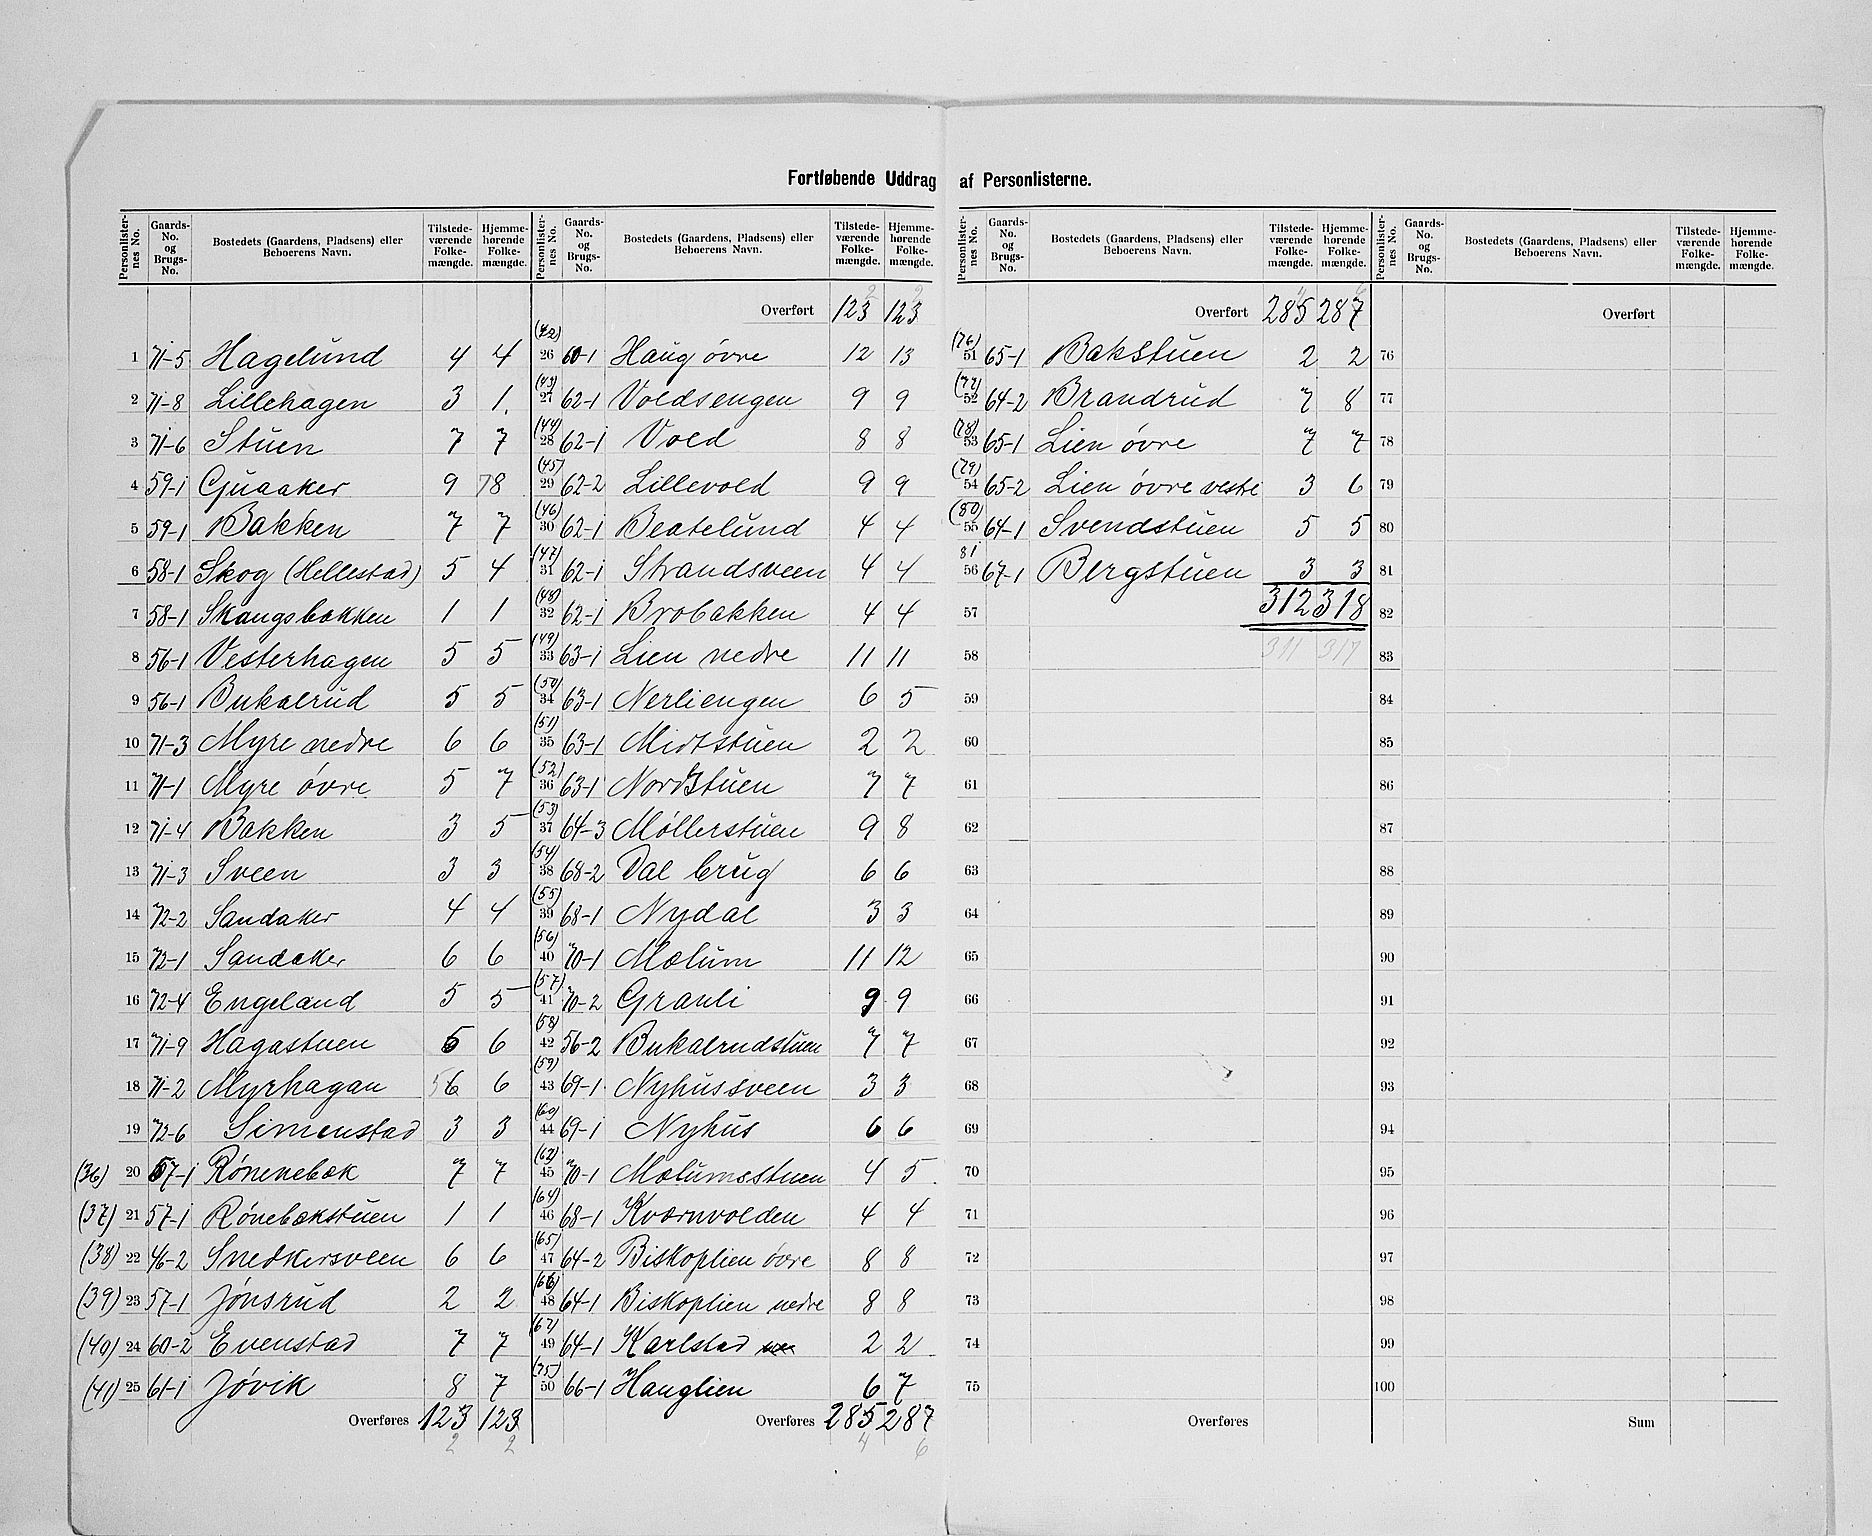 Fortløbende Uddrag af Personlisterne.
Personlisternes No. Gaards-No. og Brugs-No. Bostedets (Gaardens, Pladsens) eller Beboerens Navn. Tilstedeværende Folkemængde. Hjemmehørende Folkemængde.
1 71-5 Hagelund 4 4
2 71-8 Lillehagen 3 1
3 71-6 Stuen 7 7
4 59-1 Gjuaaker 9 78
5 59-1 Bakken 7 7
6 58-1 Skog (Hellestad) 5 4
7 58-1 Skaugsbakken 1 1
8 56-1 Vesterhagen 5 5
9 56-1 Bukalrud 5 5
10 71-3 Myre nedre 6 6
11 71-1 Myre övre 5 7
12 71-4 Bakken 3 5
13 71-3 Sveen 3 3
14 72-2 Sandaker 4 4
15 72-1 Sandaker 6 6
16 72-4 Engeland 5 5
17 71-9 Hagastuen 6
18 71-2 Myrhagan 56 6
19 72-6 Simenstad 3 3
(36) 20 57-1 Rönenebæk 7 7
(37) 21 57-1 Rönebækstuen 1 1
(38) 22 46-2 Snedkersveen 6 6
(39) 23 57-1 Jönsrud 2 2
(40) 24 60-2 Evenstad 7 7
(41) 25 61-1 Jøvik 8 7
Overføres 123 123
2 2
Personlisternes No. Gaards-No. og Brugs-No. Bostedets (Gaardens, Pladsens) eller Beboerens Navn. Tilstedeværende Folkemængde. Hjemmehørende Folkemængde.
2 2
Overført 123 123
(42) 26 60-1 Haug övre 12 13
(43) 27 62-1 Voldsengen 9 9
(44) 28 62-1 Vold 8 8
(45) 29 62-2 Lillevold 9 9
(46) 30 62-1 Beatelund 4 4
(47) 31 62-1 Strandsveen 4 4
(48) 32 62-1 Brobakken 4 4
(49) 33 63-1 Lien nedre 11 11
(50) 34 63-1 Nerliengen 6 5
(51) 35 63-1 Midtstuen 2 2
(52) 36 63-1 Nordstuen 7 7
(53) 37 64-3 Møllerstuen 9 8
(54) 38 68-2 Dal brug 6 6
(55) 39 68-1 Nydal 3 3
(56) 40 70-1 Mælum 11 12
(57) 41 70-2 Granli 9 9
(58) 42 56-2 Bukalrudstuen 7 7
(59) 43 69-1 Nyhussveen 3 3
(60) 44 69-1 Nyhus 6 6
(62) 45 70-1 Mælumsstuen 4 5
(64) 46 68-1 Kværnvolden 4 4
(65) 47 64-2 Biskoplien övre 8 8
(66) 48 64-1 Biskoplien nedre 8 8
(67) 49 64-1 Karlstad 2 2
(75) 50 66-1 Hauglien 6 7
Overføres 285 287
4 6
Personlisternes No. Gaards-No. og Brugs-No. Bostedets (Gaardens, Pladsens) eller Beboerens Navn. Tilstedeværende Folkemængde. Hjemmehørende Folkemængde.
4 6
Overført 285 287
(76) 51 65-1 Bakstuen 2 2
(77) 52 64-2 Brandrud 7 8
(78) 53 65-1 Lien övre 7 7
(79) 54 65-2 Lien övre vestre 3 6
(80) 55 64-1 Svendstuen 5 5
81 56 67-1 Bergstuen 3 3
57 312 318
58 311 317
59
60
61
62
63
64
65
66
67
68
69
70
71
72
73
74
75
Overføres
Personlisternes No. Gaards-No. og Brugs-No. Bostedets (Gaardens, Pladsens) eller Beboerens Navn. Tilstedeværende Folkemængde. Hjemmehørende Folkemængde.
Overført
76
77
78
79
80
81
82
83
84
85
86
87
88
89
90
91
92
93
94
95
96
97
98
99
100
Sum